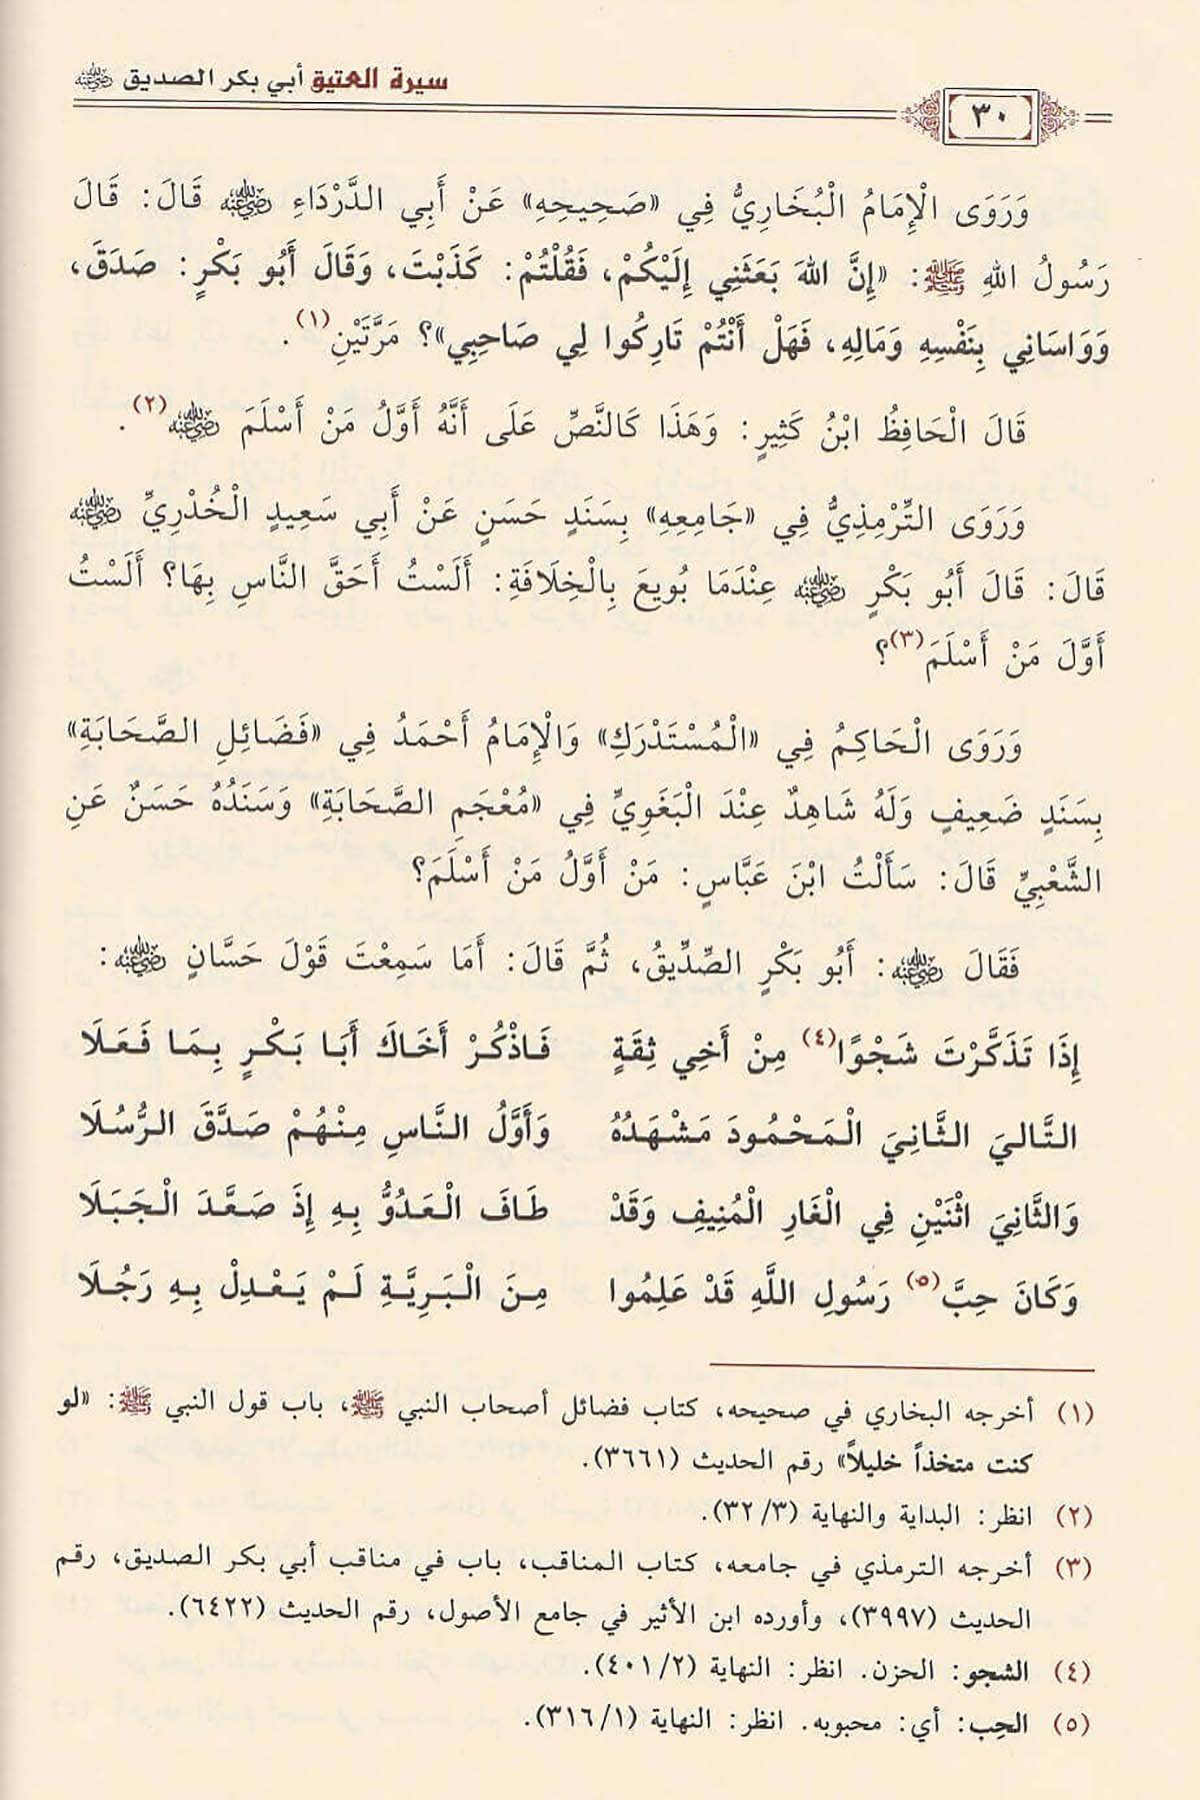 سيرة العتيق أبي بكر الصديق ﵁
٣٠
وَرَوَى الْإِمَامُ الْبُخَارِيُّ فِي «صَحِيحِهِ» عَنْ أَبِي الدَّرْدَاءِ ﵁ قَالَ: قَالَ
رَسُولُ اللهِ ﷺ: «إِنَّ اللهَ بَعَثَنِي إِلَيْكُمْ، فَقُلْتُمْ: كَذَبْتَ، وَقَالَ أَبُو بَكْرٍ: صَدَقَ،
وَوَاسَانِي بِنَفْسِهِ وَمَالِهِ، فَهَلْ أَنْتُمْ تَارِكُوا لِي صَاحِبِي»؟ مَرَّتَيْنِ(١).
قَالَ الْحَافِظُ ابْنُ كَثِيرٍ: وَهَذَا كَالنَّصِّ عَلَى أَنَّهُ أَوَّلُ مَنْ أَسْلَمَ ﵁(٢).
وَرَوَى التِّرْمِذِيُّ فِي «جَامِعِهِ» بِسَنَدٍ حَسَنٍ عَنْ أَبِي سَعِيدٍ الْخُدْرِيِّ ﵁
قَالَ: قَالَ أَبُو بَكْرٍ ﵁ عِنْدَمَا بُويِعَ بِالْخِلَافَةِ: أَلَسْتُ أَحَقَّ النَّاسِ بِهَا؟ أَلَسْتُ
أَوَّلَ مَنْ أَسْلَمَ(٣)؟
وَرَوَى الْحَاكِمُ فِي «الْمُسْتَدْرَكِ» وَالْإِمَامُ أَحْمَدُ فِي «فَضَائِلِ الصَّحَابَةِ»
بِسَنَدٍ ضَعِيفٍ وَلَهُ شَاهِدٌ عِنْدَ الْبَغَوِيِّ فِي «مُعْجَمِ الصَّحَابَةِ» وَسَنَدُهُ حَسَنٌ عَنِ
الشَّعْبِيِّ قَالَ: سَأَلْتُ ابْنَ عَبَّاسٍ: مَنْ أَوَّلُ مَنْ أَسْلَمَ؟
فَقَالَ ﵁: أَبُو بَكْرٍ الصِّدِّيقُ، ثُمَّ قَالَ: أَمَا سَمِعْتَ قَوْلَ حَسَّانٍ ﵁:
إِذَا تَذَكَّرْتَ شَجْوًا(٤) مِنْ أَخِي ثِقَةٍ فَاذْكُرْ أَخَاكَ أَبَا بَكْرٍ بِمَا فَعَلَا
التَّالِيَ الثَّانِيَ الْمَحْمُودَ مَشْهَدُهُ وَأَوَّلُ النَّاسِ مِنْهُمْ صَدَّقَ الرُّسُلَا
وَالثَّانِيَ اثْنَيْنِ فِي الْغَارِ الْمُنِيفِ وَقَدْ طَافَ الْعَدُوُّ بِهِ إِذَ صَعَّدَ الْجَبَلَا
وَكَانَ حِبَّ(٥) رَسُولِ اللَّهِ قَدْ عَلِمُوا مِنَ الْبَرِيَّةِ لَمْ يَعْدِلْ بِهِ رَجُلَا
(١) أخرجه البخاري في صحيحه، كتاب فضائل أصحاب النبي ﷺ، باب قول النبي ﷺ: «لو
كنت متخذاً خليلاً» رقم الحديث (٣٦٦١).
(٢) انظر: البداية والنهاية (٣/ ٣٢).
(٣) أخرجه الترمذي في جامعه، كتاب المناقب، باب في مناقب أبي بكر الصديق، رقم
الحديث (٣٩٩٧)، وأورده ابن الأثير في جامع الأصول، رقم الحديث (٦٤٢٢).
(٤) الشجو: الحزن. انظر: النهاية (٢/ ٤٠١).
(٥) الحِب: أي: محبوبه. انظر: النهاية (١/ ٣١٦).